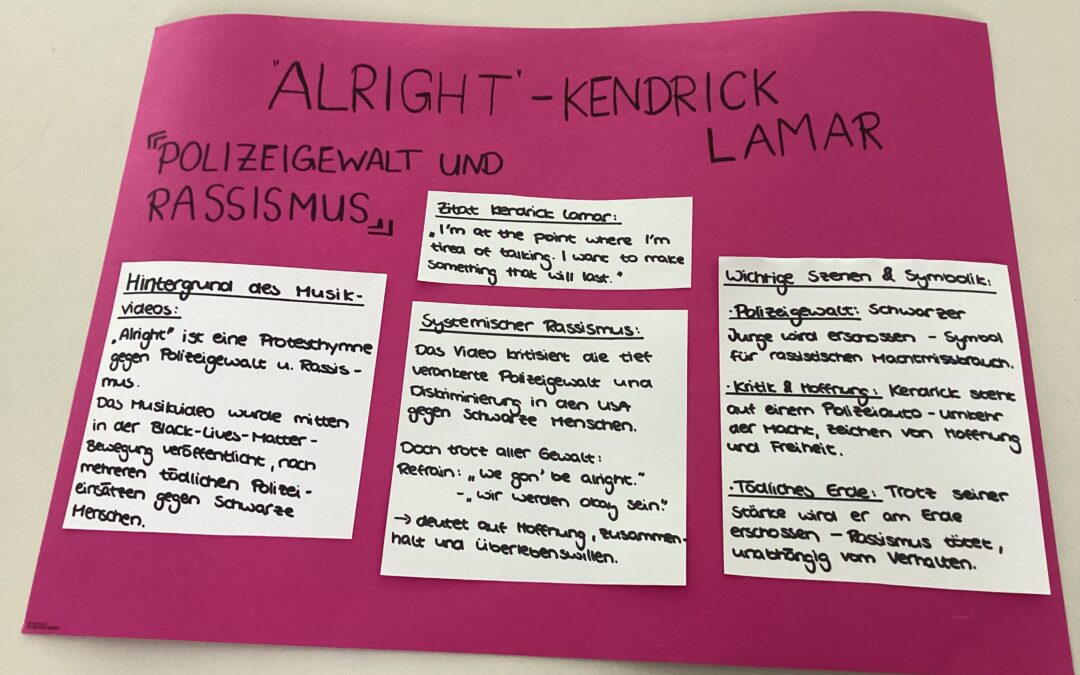 "ALRIGHT" - KENDRICK
LAMAR
"POLIZEIGEWALT UND
RASSISMUS"
Zitat Kendrick Lamar:
„I'm at the point where I'm
tired of talking. I want to make
something that will last."
Hintergrund des Musik-
videos:
„Alright" ist eine Protesthymne
gegen Polizeigewalt u. Rassis-
mus.
Das Musikvideo wurde mitten
in der Black-Lives-Matter-
Bewegung veröffentlicht, nach
mehreren tödlichen Polizei-
einsätzen gegen Schwarze
Menschen.
Systemischer Rassismus:
Das Video kritisiert die tief
verankerte Polizeigewalt und
Diskriminierung in den USA
gegen Schwarze Menschen.
Doch trotz aller Gewalt:
Refrain: „We gon' be alright."
- „wir werden okay sein."
→ deutet auf Hoffnung, Zusammen-
halt und Überlebenswillen.
Wichtige Szenen & Symbolik:
· Polizeigewalt: Schwarzer
Junge wird erschossen - Symbol
für rassistischen Machtmissbrauch.
· Kritik & Hoffnung: Kendrick steht
auf einem Polizeiauto - Umkehr
der Macht, Zeichen von Hoffnung
und Freiheit.
· Tödliches Ende: Trotz seiner
Stärke wird er am Ende
erschossen - Rassismus tötet,
unabhängig vom Verhalten.